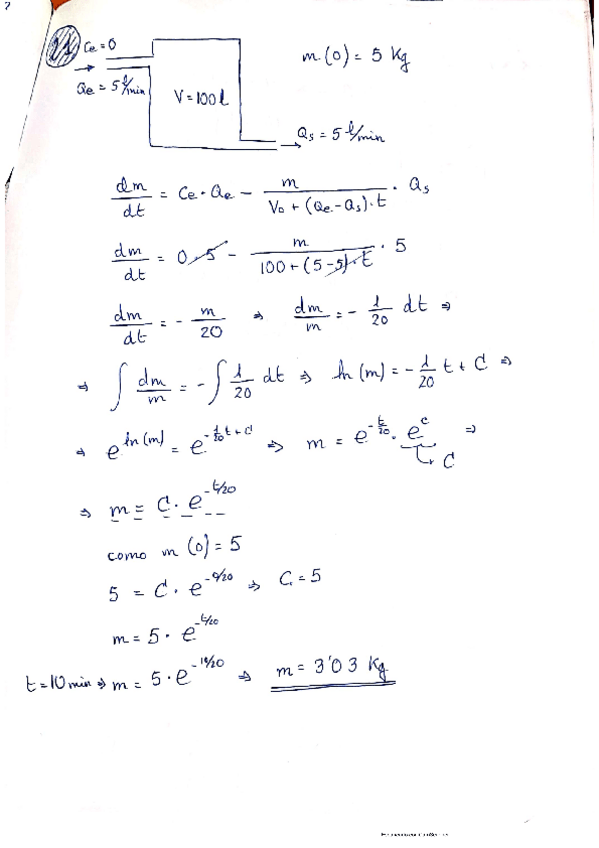 Ce = 0
m(0) = 5 Kg
Qe = 5 l/min
V = 100 l
Qs = 5 l/min
dm/dt = Ce · Qe − m/(Vo + (Qe − Qs) · t) · Qs
dm/dt = 0 · 5 − m/(100 + (5 − 5) · t) · 5
dm/dt = − m/20 ⇒ dm/m = − 1/20 dt ⇒
⇒ ∫ dm/m = − ∫ 1/20 dt ⇒ ln(m) = − 1/20 t + C ⇒
⇒ e^ln(m) = e^(−1/20 t + C) ⇒ m = e^(−t/20) · e^c ⇒
C
⇒ m = C · e^(−t/20)
como m(0) = 5
5 = C · e^(−0/20) ⇒ C = 5
m = 5 · e^(−t/20)
t = 10 min ⇒ m = 5 · e^(−10/20) ⇒ m = 3'03 Kg